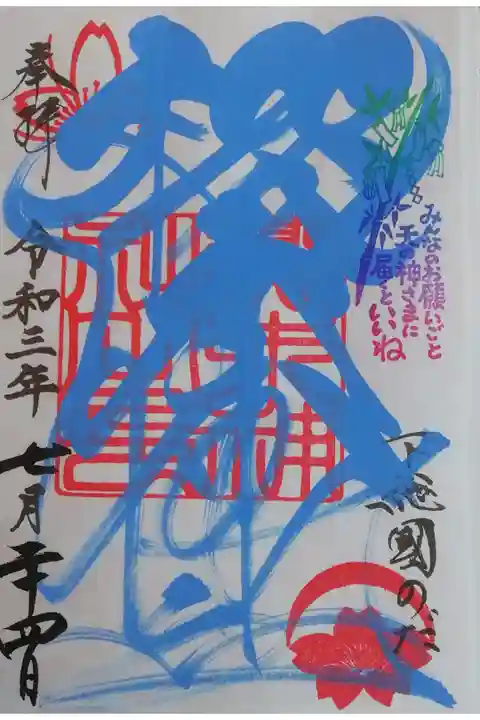 みんなのお願いごと
天の神さまに
届くといいね
下總國のだ
櫻木
奉拝 令和三年 七月二十四日